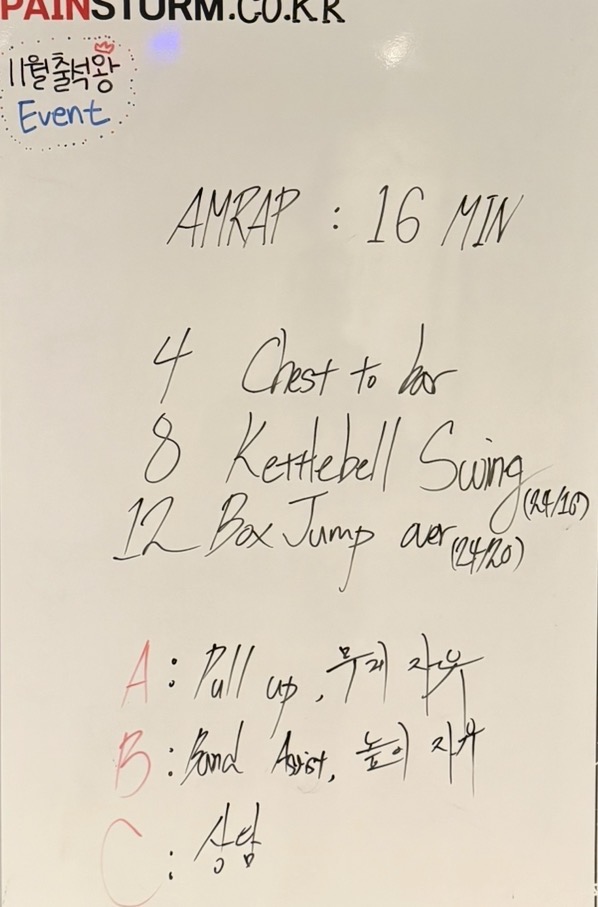 PAINSTORM.CO.KR
11월 출석왕
Event
AMRAP : 16 MIN
4 Chest to bar
8 Kettlebell Swing (24/16)
12 Box Jump over (24/20)
A : Pull up, 무게 자유
B : Band Assist, 높이 자유
C : 상담